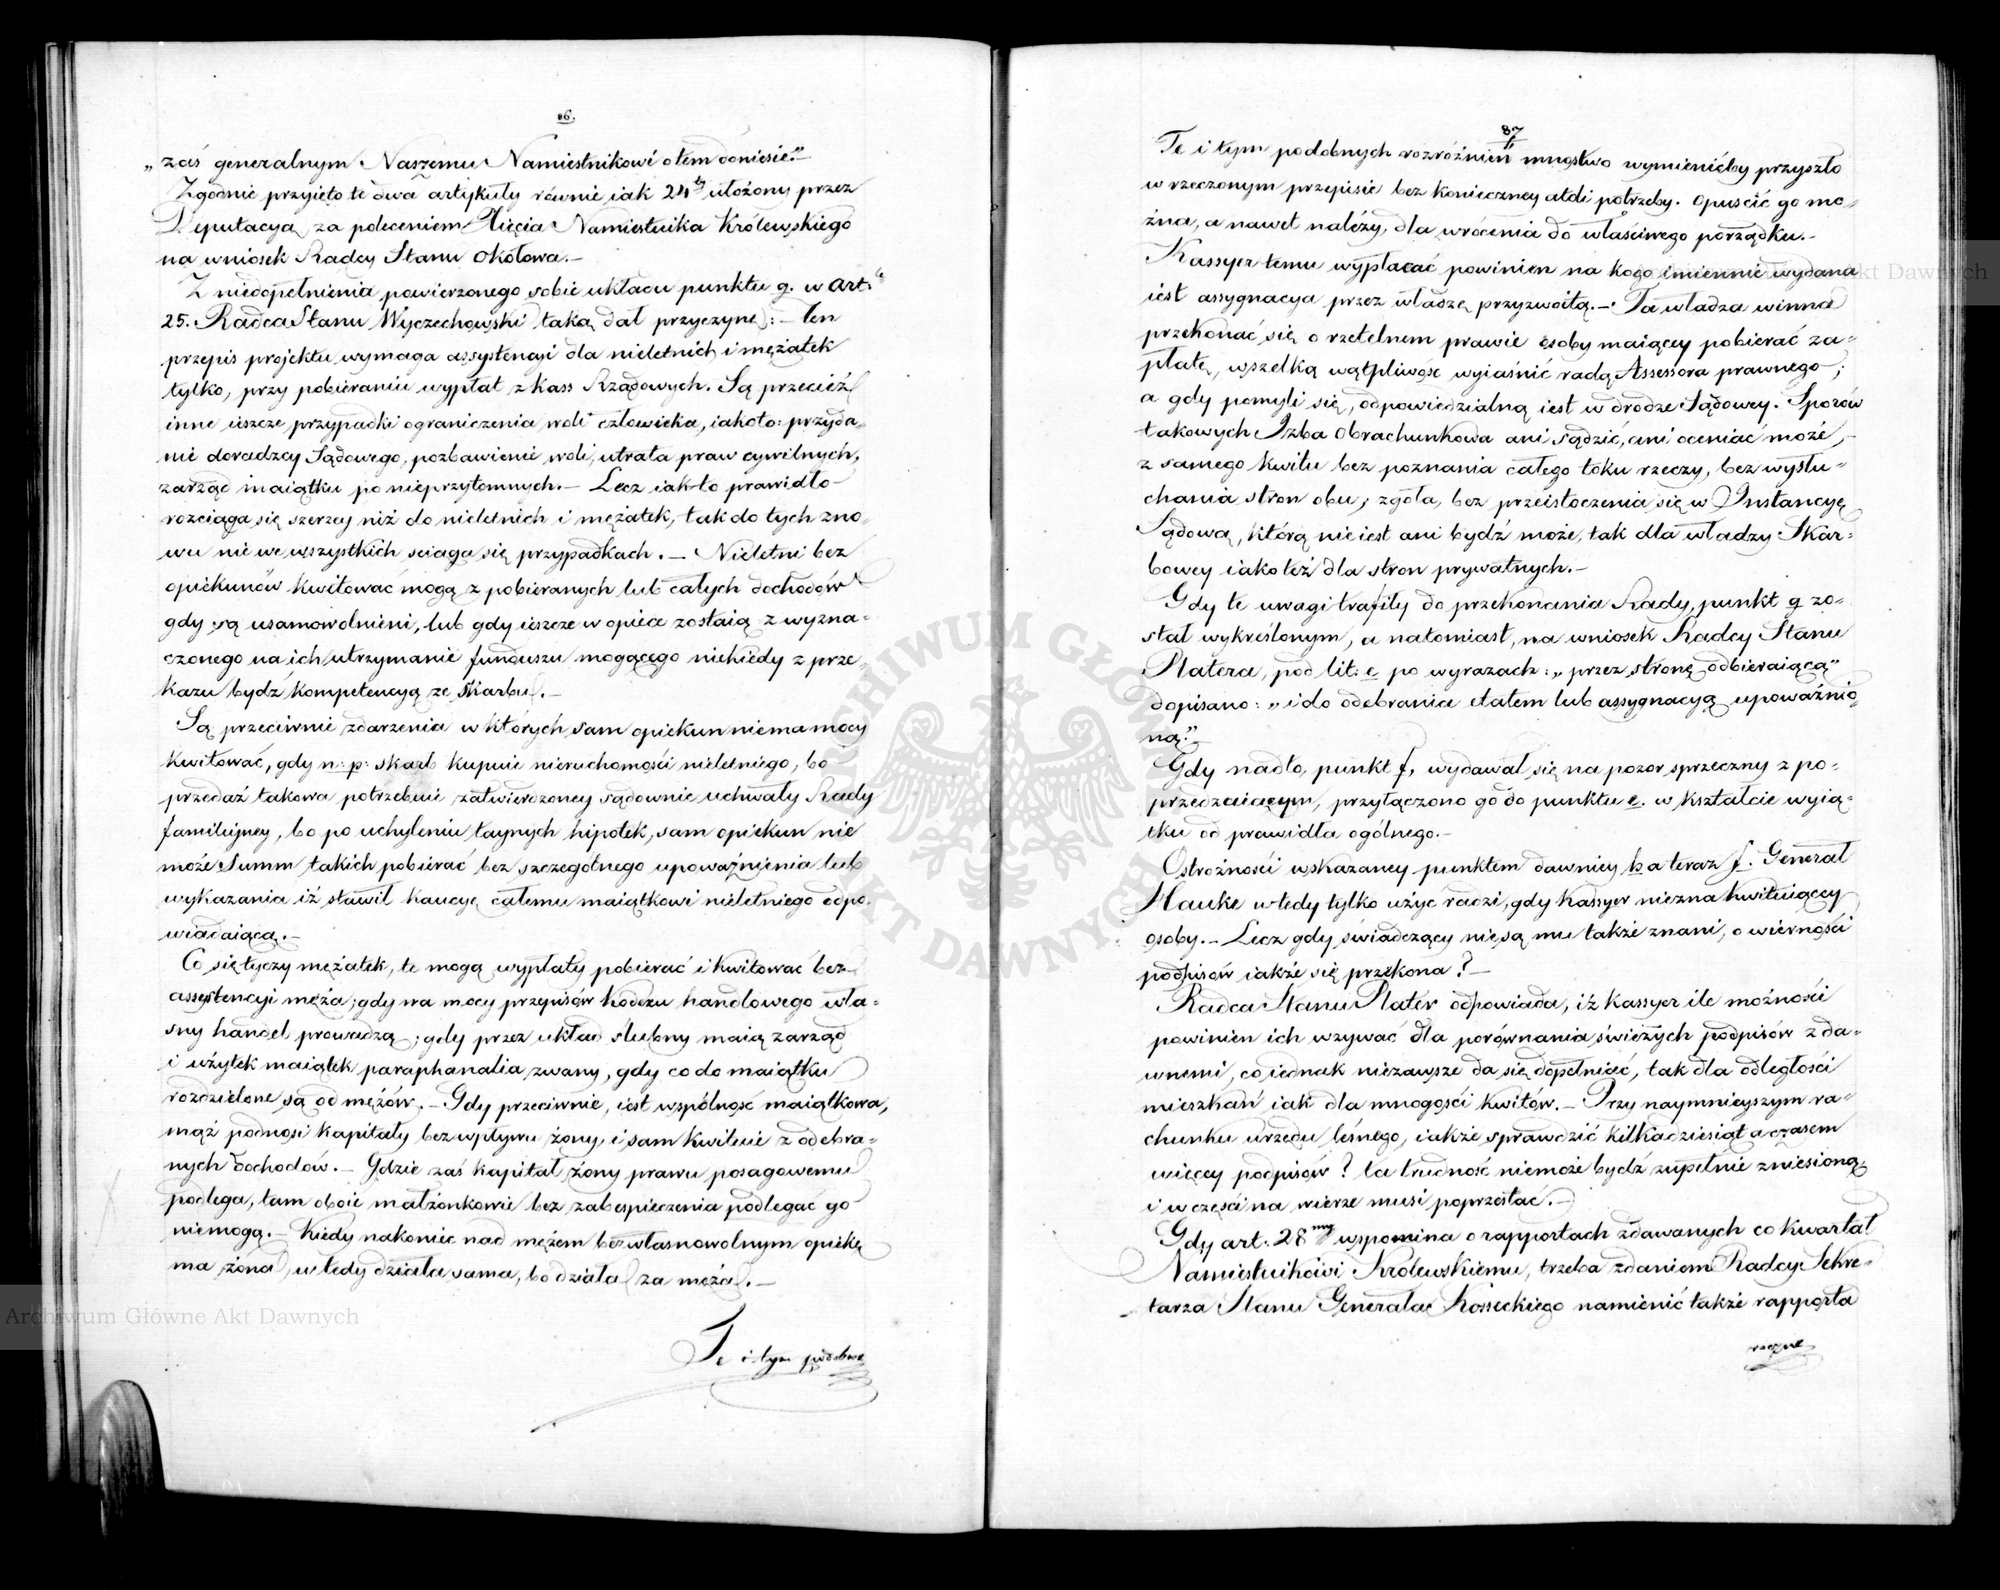 86.
„zaś generalnym Naszemu Namiestnikowi o tem doniesie.”
Zgodnie przyięto te dwa artykuły równie iak 24ty ułożony przez
Deputacyą za poleceniem Xięcia Namiestnika Królewskiego
na wniosek Radcy Stanu Okołowa.–
Z niedopełnienia powierzonego sobie układu punktu g. w art.le
25. Radca Stanu Wyczechowski taką dał przyczynę:– Ten
przepis projektu wymaga assystencyi dla nieletnich i mężatek
tylko, przy pobieraniu wypłat z kass Rządowych. Są przecież
inne ieszcze przypadki ograniczenia woli człowieka, iakoto: przyda-
nie doradzcy Sądowego, pozbawienie woli, utrata praw cywilnych,
zarząd maiątku po nieprzytomnych.– Lecz iak to prawidło
rozciąga się szerzey niż do nieletnich i mężatek, tak do tych zno-
wu nie we wszystkich sciąga się przypadkach.– Nieletni bez
opiekunów kwitować mogą z pobieranych lub całych dochodów
gdy są usamowolnieni, lub gdy ieszcze w opiece zostaią z wyzna-
czonego na ich utrzymanie funduszu mogącego niekiedy z prze-
kazu bydź kompetencyą ze Skarbu.–
Są przeciwnie zdarzenia w których sam opiekun niema mocy
kwitować, gdy n: p: skarb kupuie nieruchomości nieletniego, bo
przedaż takowa potrzebuie zatwierdzoney sądownie uchwały Rady
familijney, bo po uchyleniu taynych hipotek, sam opiekun nie
może Summ takich pobierać bez szczególnego upoważnienia lub
wykazania iż stawił kaucyę całemu maiątkowi nieletniego odpo-
wiadaiącą.–
Co się tyczy mężatek, te mogą wypłaty pobierać i kwitować bez
assystencyi męża; gdy na mocy przepisów kodexu handlowego wła-
sny handel prowadzą; gdy przez układ slubny maią zarząd
i użytek maiątek paraphanalia zwany, gdy co do maiątku
rozdzielone są od mężów.– Gdy przeciwnie, iest wspólność maiątkowa,
mąż podnosi kapitały bez wpływu żony, i sam kwituie z odebra-
nych dochodów.– Gdzie zaś kapitał żony prawu posagowemu
podlega, tam oboie małżonkowie bez zabespieczenia podlegać go
niemogą.– Kiedy nakoniec nad mężem bezwłasnowolnym opiekę
ma żona, wtedy działa sama, bo działa za męża.–
Te i tym podobne
87
Te i tym podobnych rozróżnień mnóstwo wymienićby przyszło
w rzeczonym przepisie bez konieczney atoli potrzeby. Opuścić go mo-
żna, a nawet należy, dla wrócenia do właściwego porządku.–
Kassyer temu wypłacać powinien na kogo imiennie wydana
iest assygnacya przez władzę przyzwoitą.– Ta władza winna
przekonać się o rzetelnem prawie osoby maiącey pobierać za-
płatę, wszelką wątpliwość wyiaśnić radą Assessora prawnego;
a gdy pomyli się, odpowiedzialną iest w drodze Sądowey. Sporów
takowych Izba Obrachunkowa ani sądzić, ani oceniać może,
z samego kwitu bez poznania całego toku rzeczy, bez wysłu-
chania stron obu; zgoła, bez przeistoczenia się w Instancyę
Sądową, którą nie iest ani bydź może, tak dla władzy Skar-
bowey iako też dla stron prywatnych.–
Gdy te uwagi trafiły do przekonania Rady, punkt g zo-
stał wykreślonym, a natomiast, na wniosek Radcy Stanu
Platera, pod lit: e po wyrazach: „przez stronę odbieraiącą”
dopisano: „i do odebrania etatem lub assygnacyą upoważnio-
ną.”–
Gdy nadto, punkt f, wydawał się na pozor sprzeczny z po-
przedzaiącym, przyłączono go do punktu e. w kształcie wyią-
tku od prawidła ogólnego.–
Ostrożności wskazaney punktem dawniey h a teraz f. Generał
Hauke wtedy tylko użyć radzi, gdy kassyer niezna kwituiącey
osoby.– Lecz gdy świadczący nie są mu także znani, o wierności
podpisów iakże się przekona?–
Radca Stanu Plater odpowiada, iż kassyer ile możności
powinien ich wzywać dla porównania świeżych podpisów z da-
wnemi, co iednak niezawsze da się dopełniać, tak dla odległości
mieszkań iak dla mnogości kwitów.– Przy naymnieyszym ra-
chunku urzędu leśnego, iakże sprawdzić kilkadziesiąt a czasem
więcey podpisów? ta trudność niemoże bydź zupełnie zniesioną,
i w części na wierze musi poprzestać.–
Gdy art. 28my wspomina o rapportach zdawanych co kwartał
Namiestnikowi Królewskiemu, trzeba zdaniem Radcy Sekre-
tarza Stanu Generała Kosseckiego namienić także rapporta
roczne
Archiwum Główne Akt Dawnych
Archiwum Główne Akt Dawnych
ARCHIWUM GŁÓWNE AKT DAWNYCH